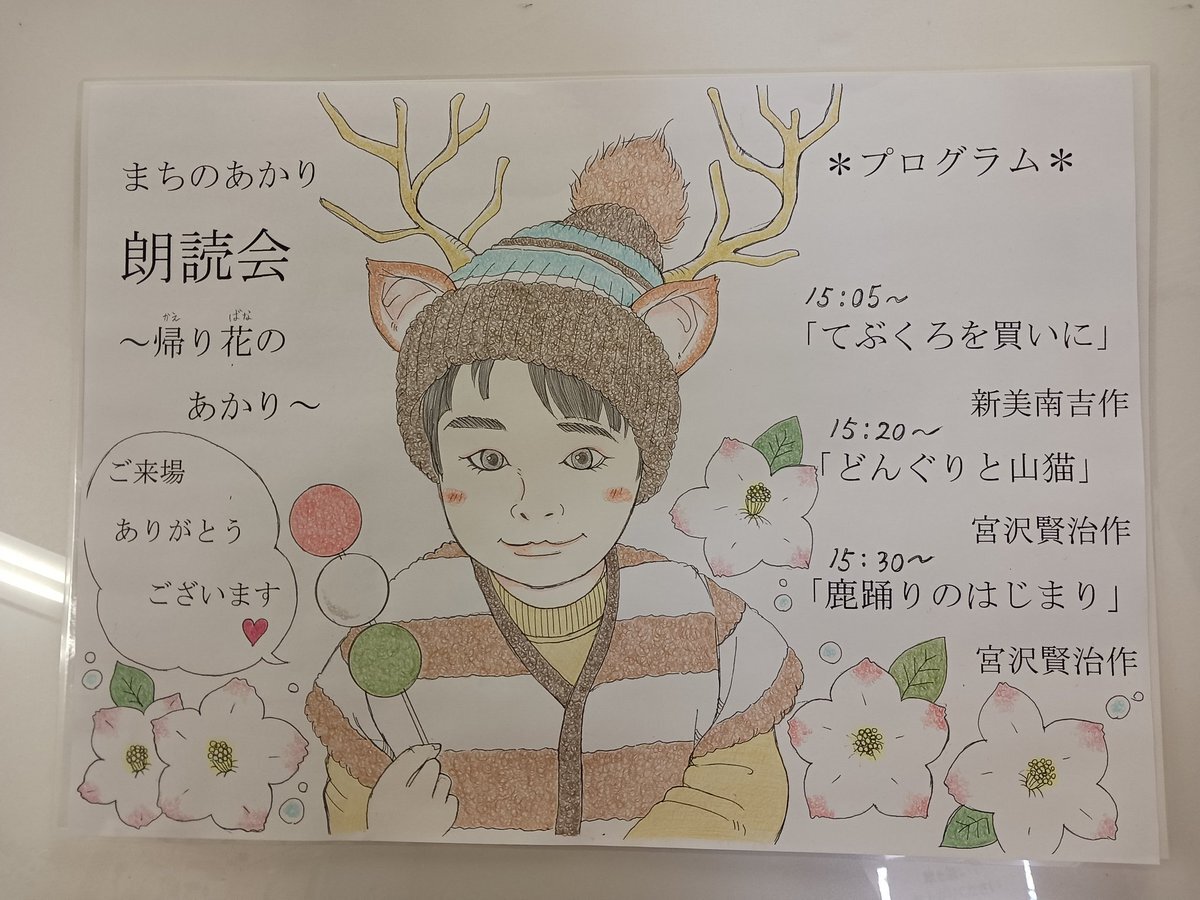 まちのあかり
朗読会
～帰り花の
かえ ばな
あかり～
ご来場
ありがとう
ございます
＊プログラム＊
15:05～
「てぶくろを買いに」
新美南吉作
15:20～
「どんぐりと山猫」
宮沢賢治作
15:30～
「鹿踊りのはじまり」
宮沢賢治作